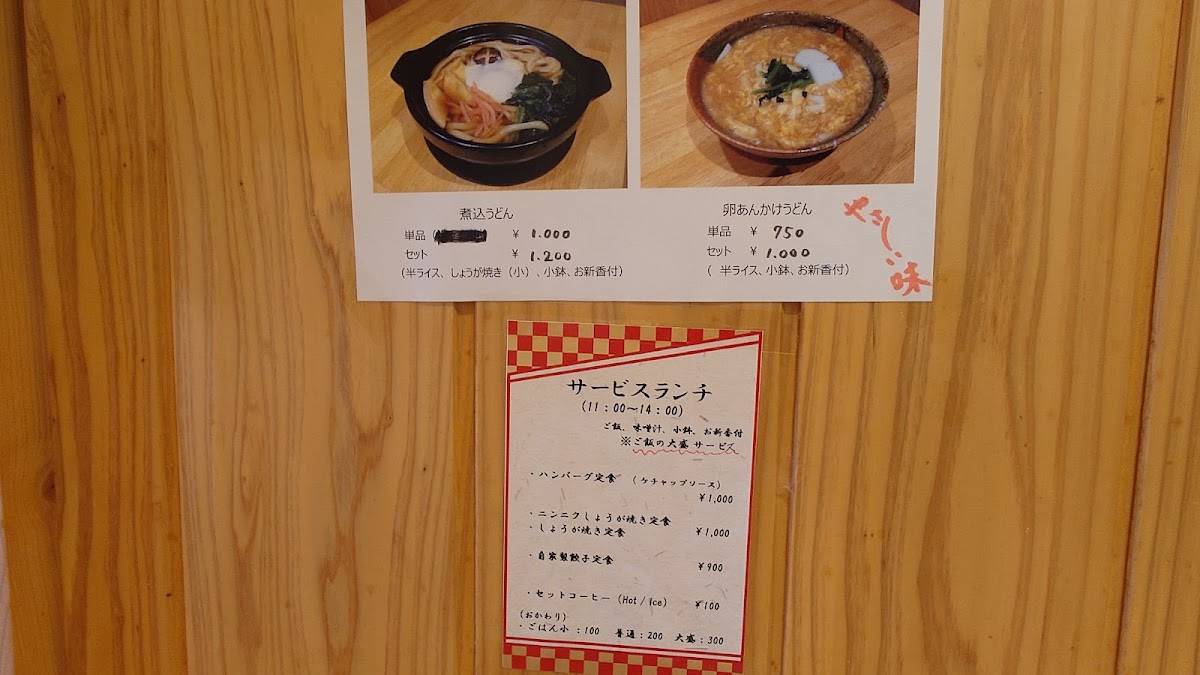 煮込うどん
単品 ( ¥ 1.000
セット ¥ 1.200
(半ライス、しょうが焼き (小) 、小鉢、お新香付)
卵あんかけうどん
単品 ¥ 750
セット ¥ 1.000
( 半ライス、小鉢、お新香付)
やさしい味
サービスランチ
(11：00～14：00)
ご飯、味噌汁、小鉢、お新香付
※ご飯の大盛サービス
・ハンバーグ定食 (ケチャップソース)
¥1,000
・ニンニクしょうが焼き定食
・しょうが焼き定食 ¥1,000
・自家製餃子定食
¥900
・セットコーヒー (Hot / Ice) ¥100
(おかわり)
・ごはん小：100 普通：200 大盛：300